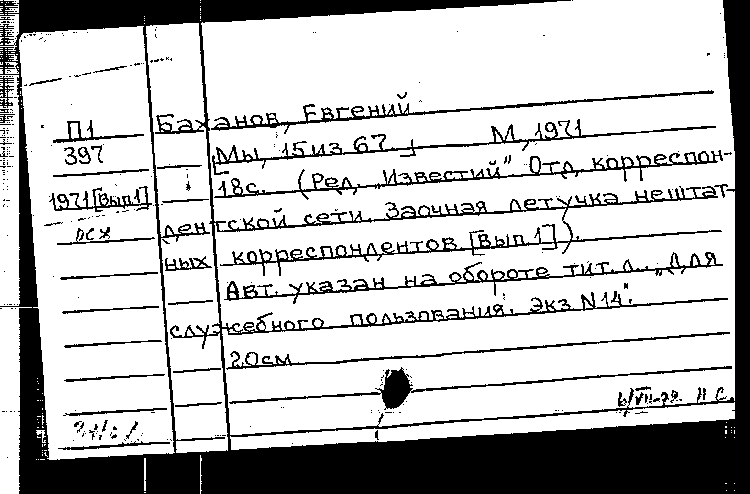 П1
397
1971[Вып1]
DCX
Баханов, Евгений
[Мы, 15 из 67.] М, 1971
18с. (Ред. „Известий" Отд корреспон-
дентской сети. Заочная летучка нештат-
ных корреспондентов [Вып 1]).
Авт. указан на обороте тит. л. „Для
служебного пользования. Экз N14".
20см
6/VII-72. П С.